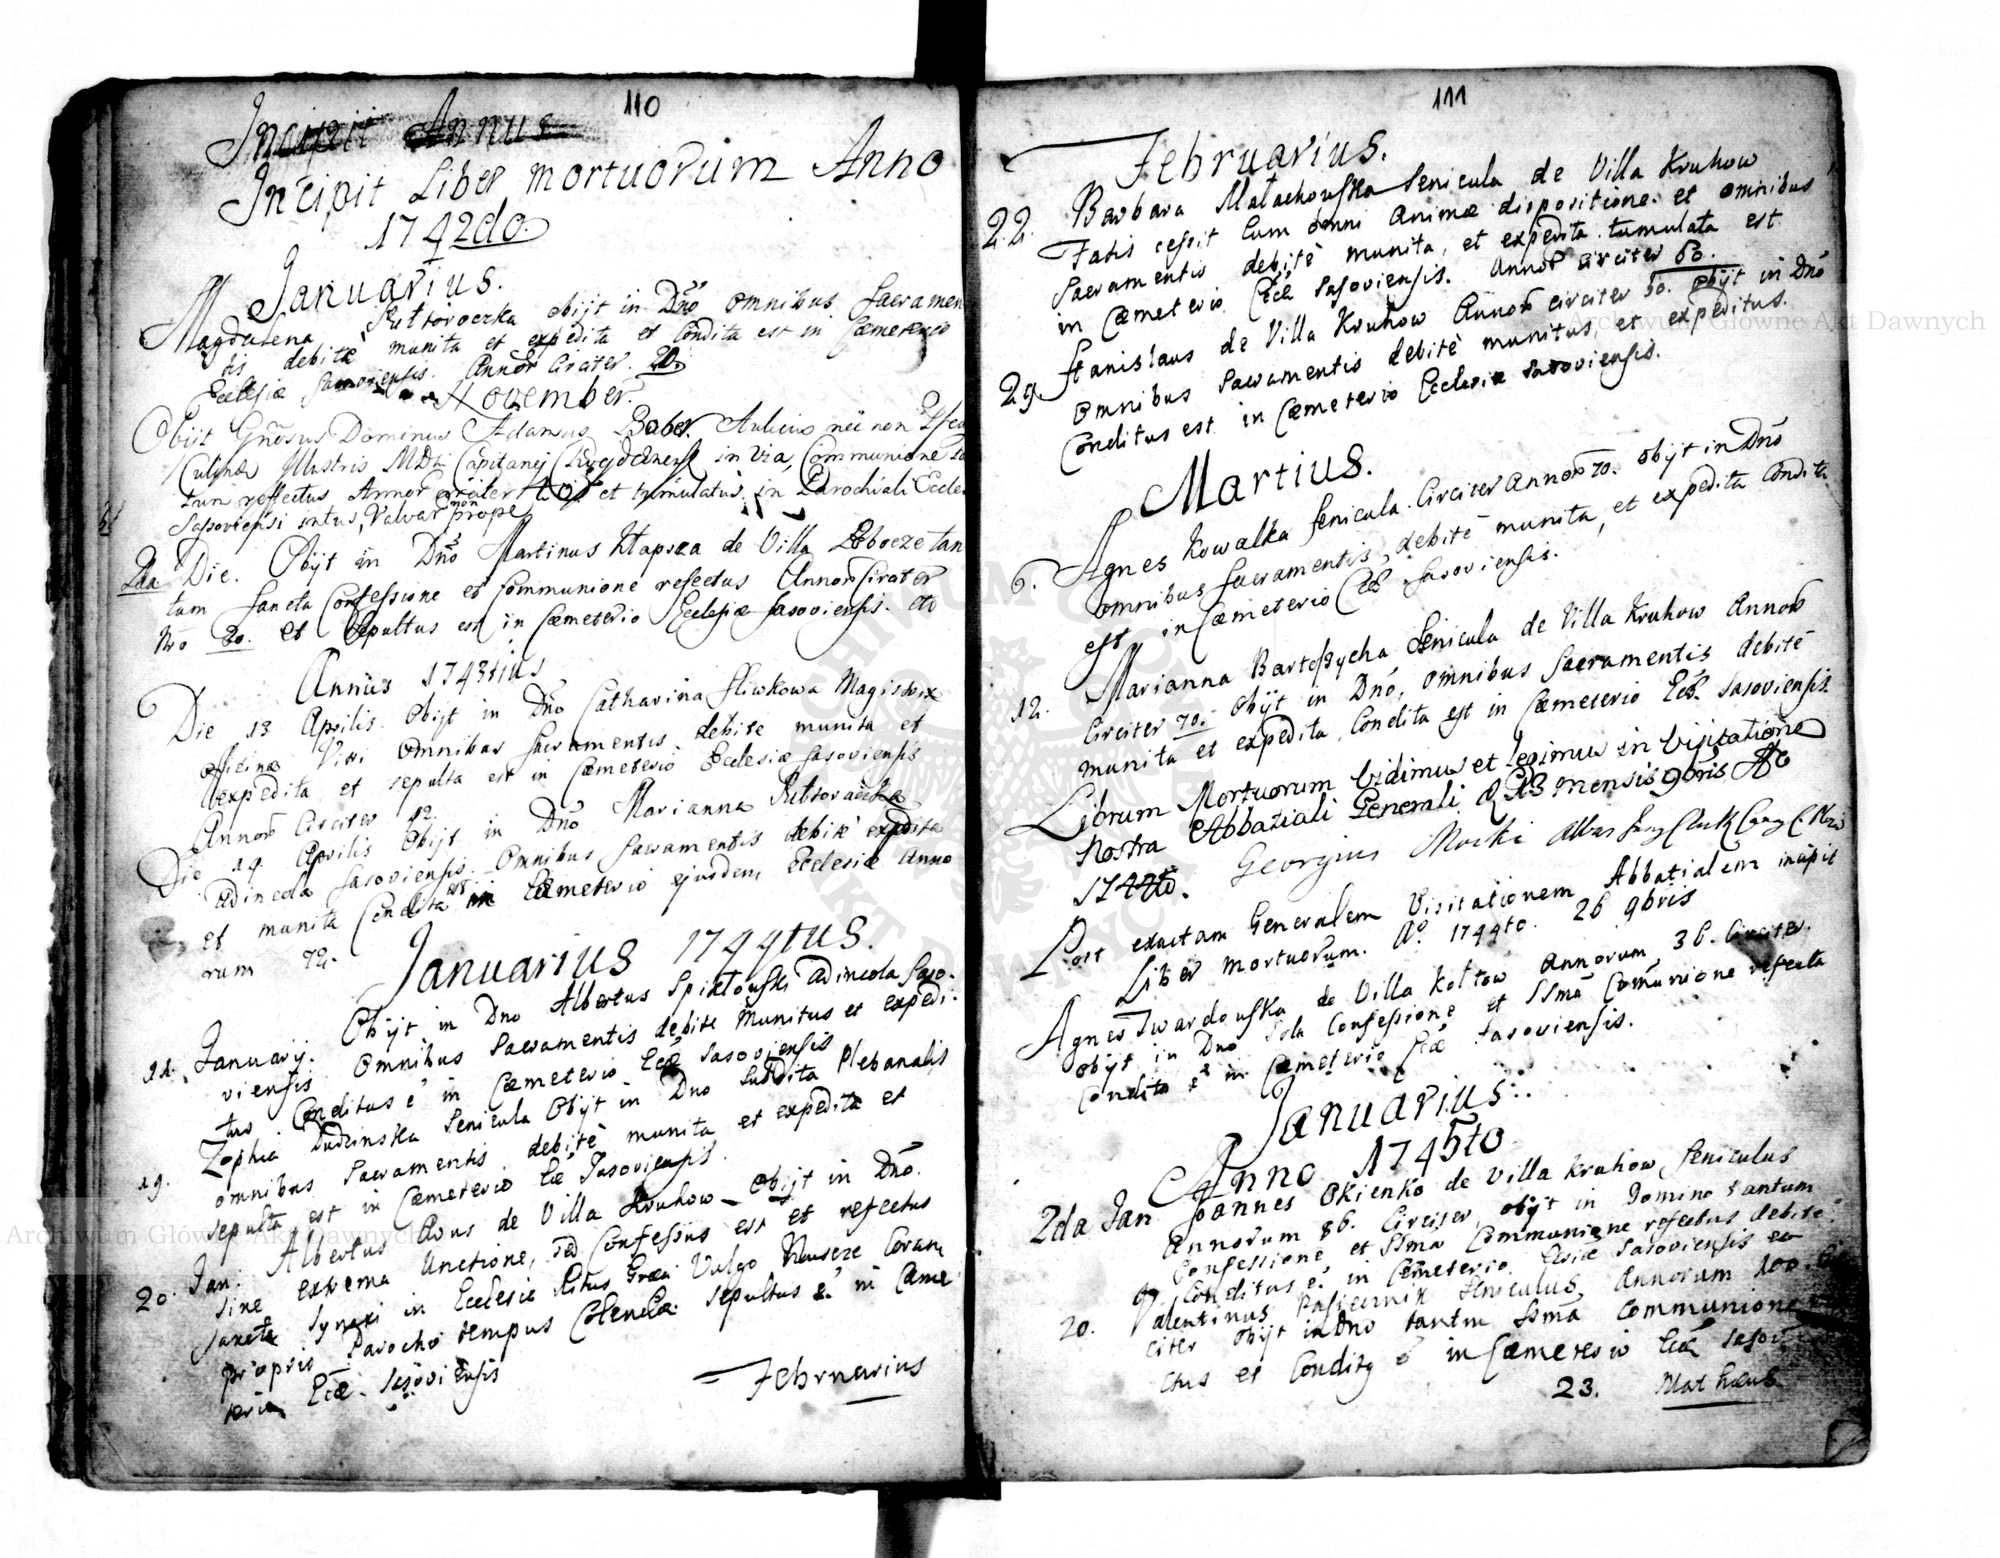 110
Incipit Annus
Incipit Liber mortuorum Anno
1742do.
Januarius.
Magdalena obijt in Dño omnibus Sacramen
tis debite munita et expedita et Condita est in Cœmeterio
Ecclesiæ Sasoviensis. Annor̃ Circiter 20.
November.
Obijt Gñosus Dominus Adamus Aulicus nec non
Culinæ Illustris Capitanej in via, Communione
tum reffectus Annor̃ circiter et tumulatus in Parochiali Eccle
Sasoviensi intus, Valvar non prope
2da Die. Obijt in Dño Martinus de Villa tan
tum Sancta Confessione et Communione refectus Annor̃ Circiter
Nro 30. et Sepultus est in Cœmeterio Ecclesiæ Sasoviensis.
Annus 1743tius
Die 13 Aprilis Obijt in Dño Catharina Sliwkowa Magistrix
officinæ Vitri omnibus Sacramentis debite munita et
expedita et sepulta est in Cœmeterio Ecclesiæ Sasoviensis
Annor̃ Circiter 42.
Die 19 Aprilis Obijt in Dño Marianna
adincola Sasoviensis Omnibus Sacramentis debitè expedita
et munita Condita est in Cœmeterio ejusdem Ecclesiæ Anno
rum 72.
Januarius 1744tus.
Obijt in Dno Albertus adincola Saso-
11. Januarij. viensis omnibus Sacramentis debite Munitus et expedi-
tus Conditus e in Cœmeterio Ecæ Sasoviensis
19. Zophia Dudzinska Senicula Obijt in Dno Subdita Plebanalis
omnibus Sacramentis debitè munita et expedita et
sepulta est in Cœmeterio Ecæ Sasoviensis.
20. Jan: Albertus Avus de Villa Kruhow Obijt in Dño.
sine extrema Unctione, sed Confessus est et refectus
Sancta Synaxi in Ecclesia Ritus Græci Vulgo Coram
proprio Parocho tempus sepultus e in Cæme
terio Ecæ Sasoviensis
Februarius
111
Februarius.
22. Barbara Małachowska Senicula de Villa Kruhow
Fatis cessit Cum omni Animæ dispositione et omnibus
Sacramentis debitè munita, et expedita tumulata est
in Cœmeterio Ecæ Sasoviensis. Annor̃ circiter 60.
29 Stanislaus de Villa Kruhow Annor̃ circiter 50. obijt in Dño
omnibus Sacramentis debitè munitus, et expeditus.
Conditus est in Cœmeterio Ecclesiæ Sasoviensis.
Martius.
6. Agnes Kowalka Senicula Circiter Annor̃ 70. obijt in Dño
omnibus Sacramentis, debitè munita, et expedita Condita
est in Cœmeterio Ecæ Sasoviensis.
12. Marianna Senicula de Villa Kruhow Annor̃
Circiter 70. Obijt in Dño, omnibus Sacramentis debitè
munita et expedita, Condita est in Cœmeterio Ecæ Sasoviensis
Librum Mortuorum Vidimus et Legimus in Visitatione
Nostra Abbatiali Generali mensis 9bris Ao
1744to. Georgius
Post exactam Generalem Visitationem Abbatialem incipit
Liber mortuorum. Ao 1744to. 26 9bris
Agnes Twardowska de Villa Koltow Annorum 36. Circiter.
obijt in Dno Sola Confessione et SSmã Comunione refecta
Condita e in Cœmeterio Ecæ Sasoviensis.
Januarius.
Anno 1745to
2da Jan. Joannes Okienko de Villa Kruhow Seniculus
Annorum 86. Circiter, obijt in Domino tantum
Confessione et SSma Communione refectus debite
Conditus e. in Cœmeterio Ecsiæ Sasoviensis
20. Valentinus Pasiecznik Seniculus Annorum 100. Cir
citer Obijt in Dno tantm SSmã Communione
ctus et Condit9 e in Cœmeterio Ecæ Sasov
23. Mathæus
Archiwum Główne Akt Dawnych
Archiwum Główne Akt Dawnych
ARCHIWUM GŁÓWNE AKT DAWNYCH